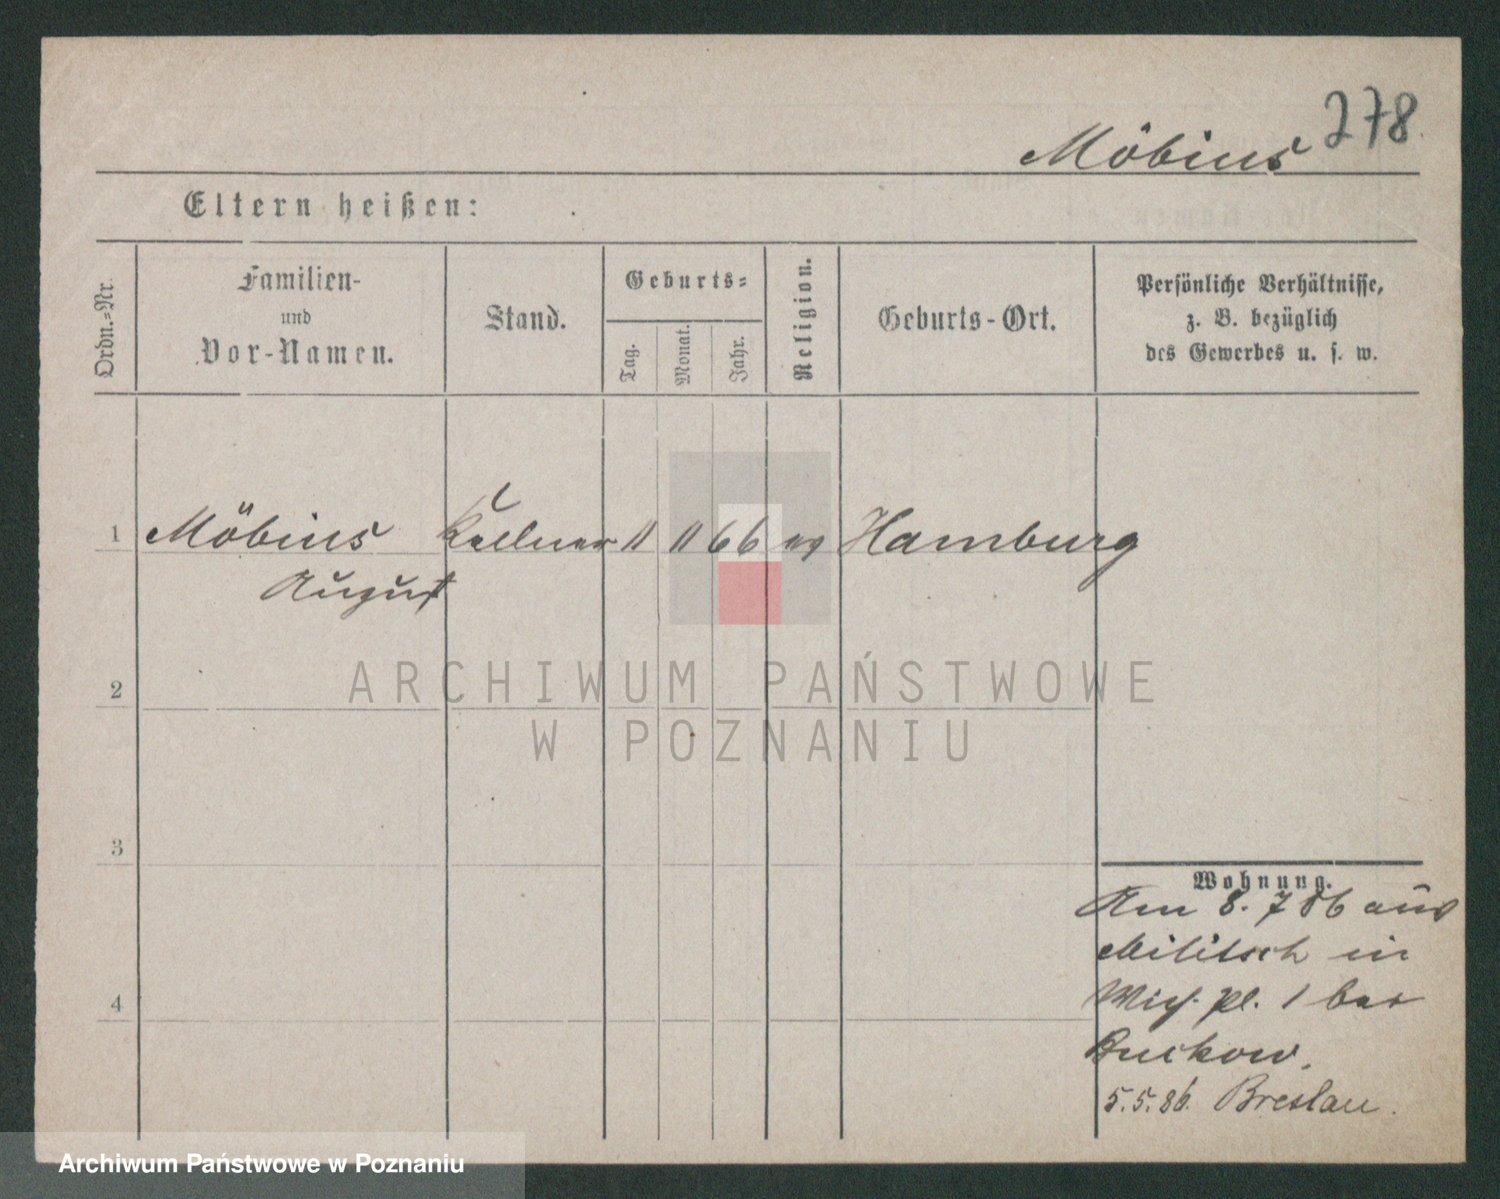 278
Möbius
Eltern heißen:
Ordn.-Nr.
Familien-
und
Vor-Namen.
Stand.
Geburts-
Tag.
Monat.
Jahr.
Religion.
Geburts-Ort.
Persönliche Verhältnisse,
z. B. bezüglich
des Gewerbes u. s. w.
1 Möbius Kellner 11 11 66 ev Hamburg
August
2
3
4
Wohnung.
Am 8. 7 86 aus
Militsch in
pl. 1 bei
Buckow.
5.5.86. Breslau.
ARCHIWUM PAŃSTWOWE
W POZNANIU
Archiwum Państwowe w Poznaniu